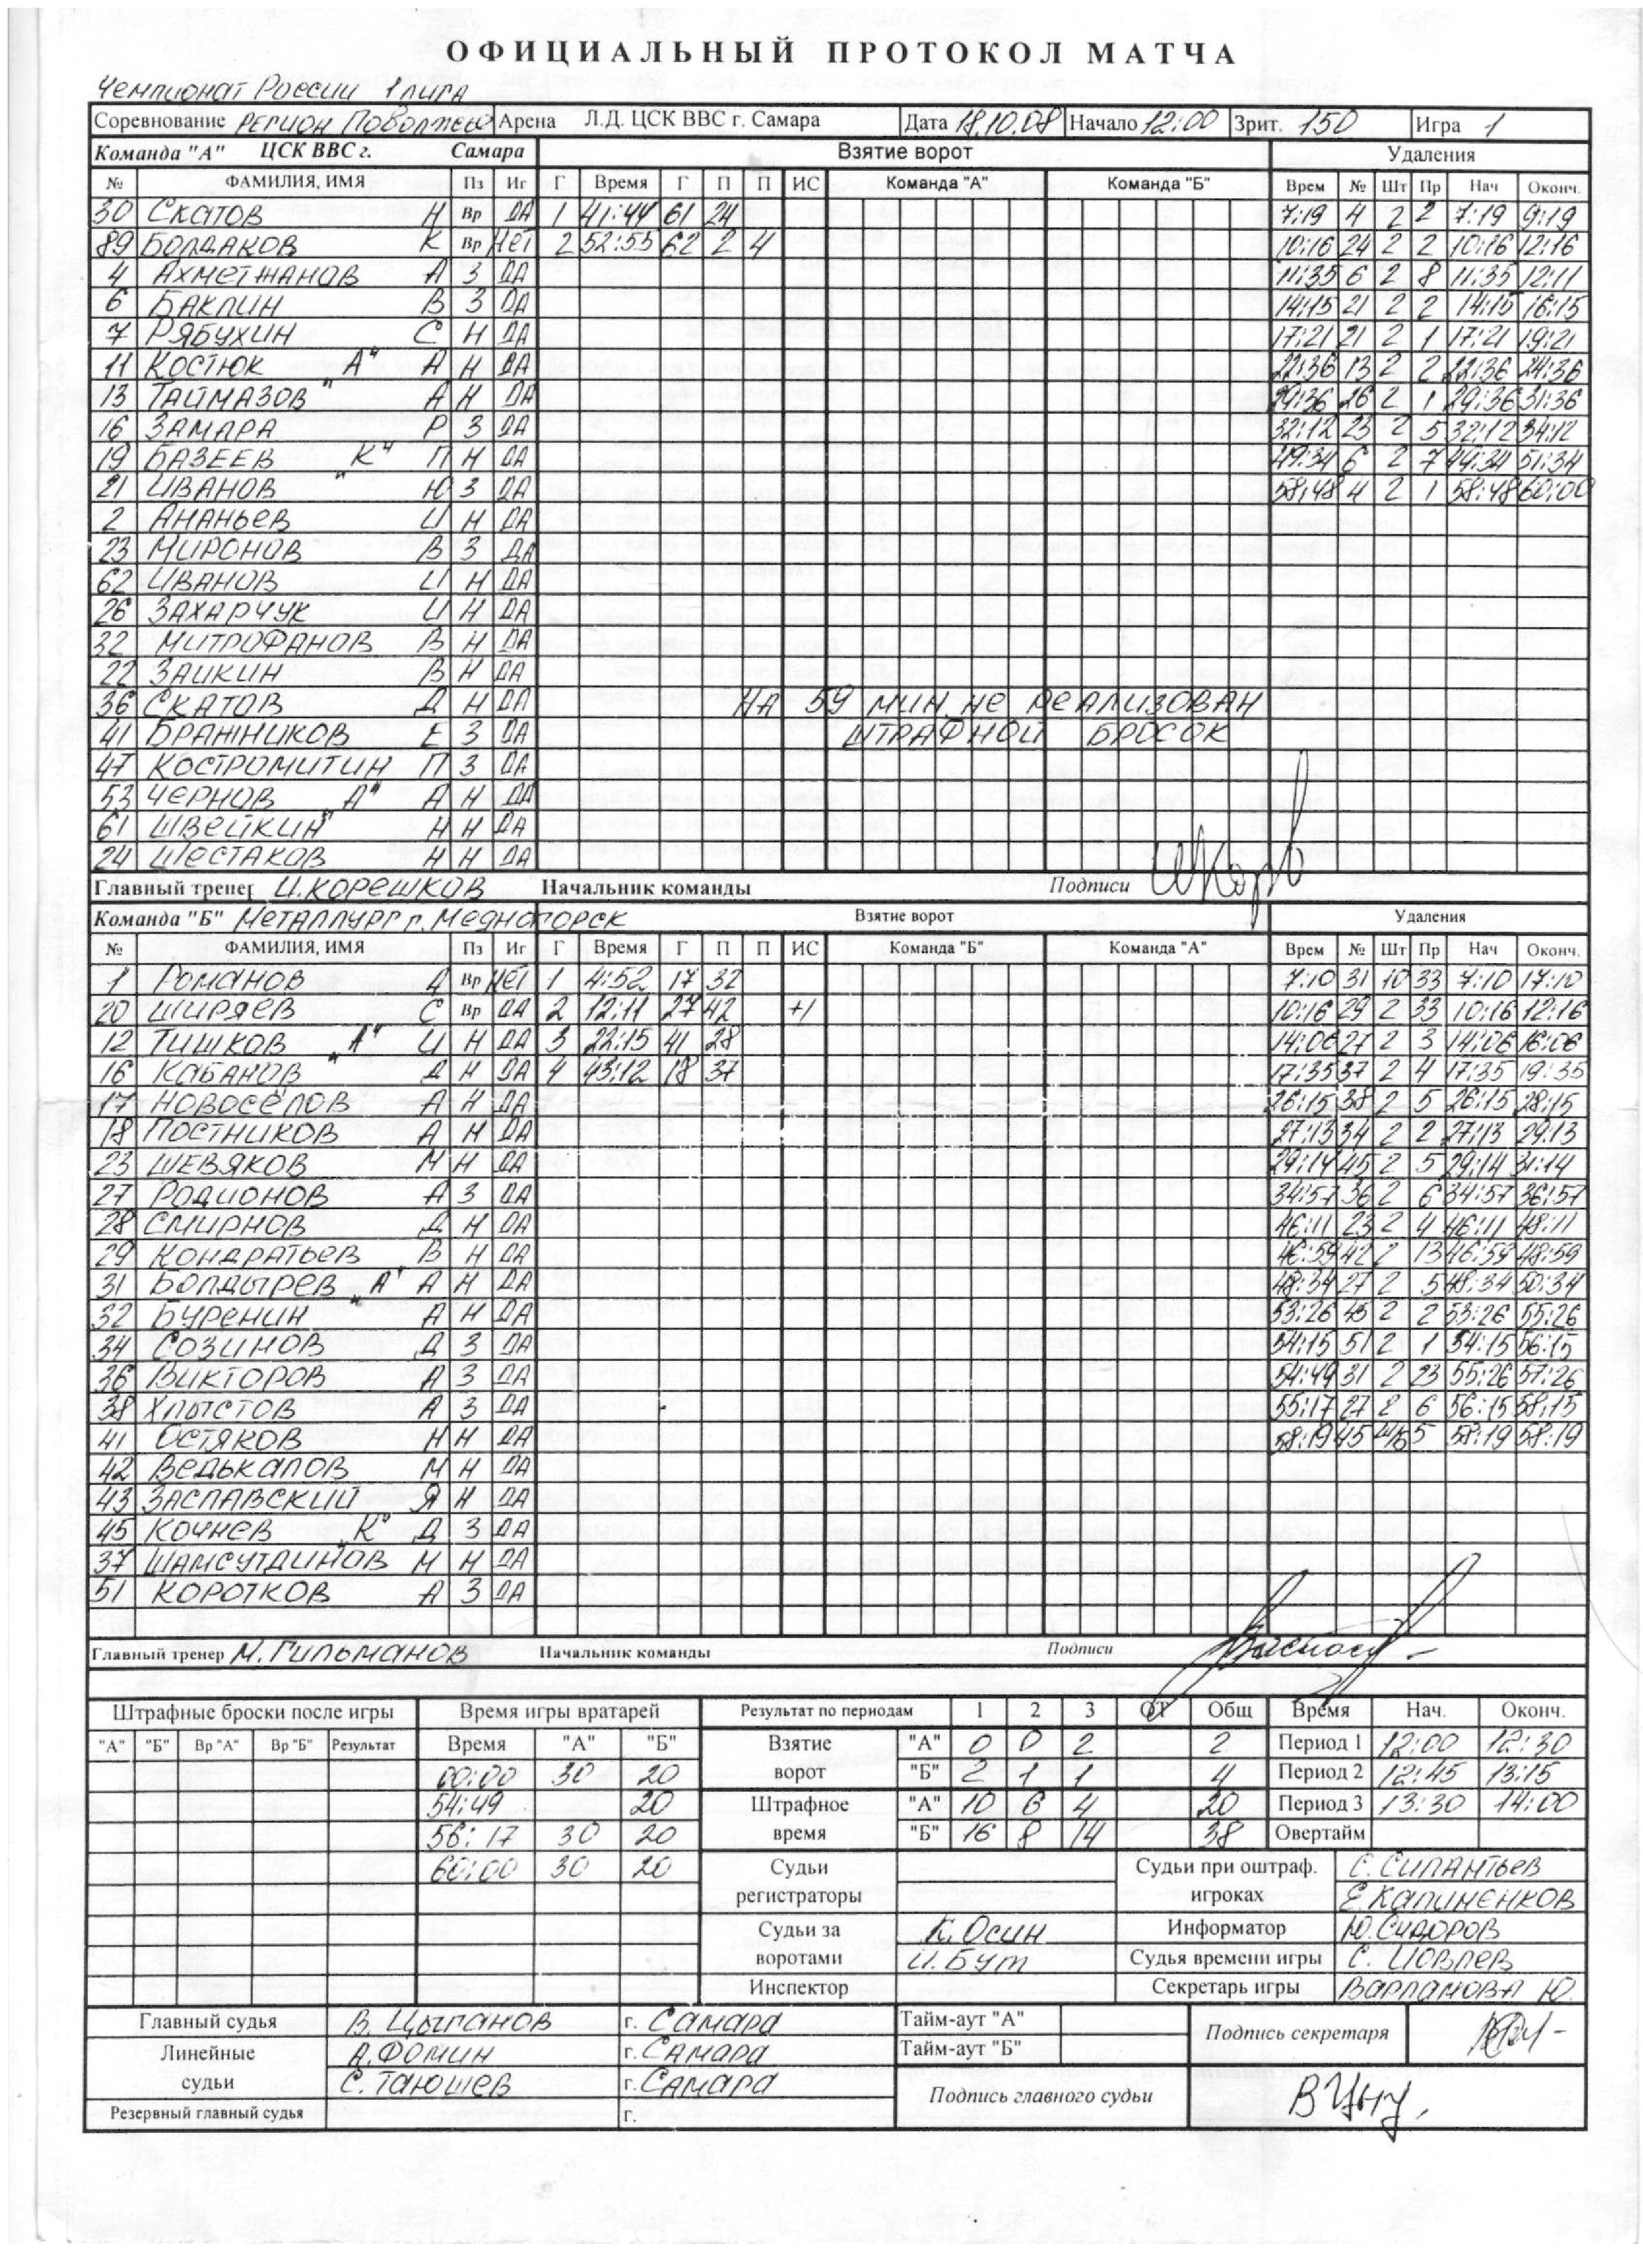 ОФИЦИАЛЬНЫЙ ПРОТОКОЛ МАТЧА
Чемпионат России 1 лига
Соревнование Регион Поволжье Арена Л.Д. ЦСК ВВС г. Самара Дата 18.10.08 Начало 12:00 Зрит. 150 Игра 1
Команда "А" ЦСК ВВС г. Самара Взятие ворот Удаления
№ ФАМИЛИЯ, ИМЯ Пз Иг Г Время Г П П ИС Команда "А" Команда "Б" Врем № Шт Пр Нач Оконч.
30 Скатов Н Вр ДА 1 41:44 61 24 7:19 4 2 2 7:19 9:19
89 Болдаков К Вр Нет 2 52:55 62 2 4 10:16 24 2 2 10:16 12:16
4 Ахметжанов А З ДА 11:35 6 2 8 11:35 12:11
6 Баклин В З ДА 14:15 21 2 2 14:15 16:15
7 Рябухин С Н ДА 17:21 21 2 1 17:21 19:21
11 Костюк "А" А Н ДА 22:36 13 2 2 22:36 24:36
13 Таймазов А Н ДА 29:36 26 2 1 29:36 31:36
16 Замара Р З ДА 32:12 23 2 5 32:12 34:12
19 Базеев "К" П Н ДА 49:34 6 2 7 49:34 51:34
21 Иванов Ю З ДА 58:48 4 2 1 58:48 60:00
2 Ананьев И Н ДА
23 Миронов В З ДА
62 Иванов И Н ДА
26 Захарчук И Н ДА
32 Митрофанов В Н ДА
22 Заикин В Н ДА
36 Скатов Д Н ДА На 59 мин не реализован
41 Бражников Е З ДА штрафной бросок
47 Костромитин П З ДА
53 Чернов "А" А Н ДА
61 Швейкин Н Н ДА
24 Шестаков Н Н ДА
Главный тренер И. Корешков Начальник команды Подписи
Команда "Б" Металлург г. Медногорск Взятие ворот Удаления
№ ФАМИЛИЯ, ИМЯ Пз Иг Г Время Г П П ИС Команда "Б" Команда "А" Врем № Шт Пр Нач Оконч.
1 Романов Д Вр Нет 1 4:52 17 32 7:10 31 10 33 7:10 17:10
20 Ширяев С Вр ДА 2 12:11 27 42 +1 10:16 29 2 33 10:16 12:16
12 Тишков "А" И Н ДА 3 22:15 41 28 14:06 27 2 3 14:06 16:06
16 Кабанов Д Н ДА 4 43:12 18 37 17:35 37 2 4 17:35 19:35
17 Новоселов А Н ДА 26:15 38 2 5 26:15 28:15
18 Постников А Н ДА 27:13 34 2 2 27:13 29:13
23 Шевяков М Н ДА 29:14 45 2 5 29:14 31:14
27 Родионов А З ДА 34:57 36 2 6 34:57 36:57
28 Смирнов Д Н ДА 46:11 23 2 4 46:11 48:11
29 Кондратьев В Н ДА 46:59 42 2 13 46:59 48:59
31 Болдырев "А" А Н ДА 48:34 27 2 5 48:34 50:34
32 Буренин А Н ДА 53:26 45 2 2 53:26 55:26
34 Созинов Д З ДА 54:15 51 2 1 54:15 56:15
36 Викторов А З ДА 54:49 31 2 23 55:26 57:26
38 Хлыстов А З ДА 55:17 27 2 6 56:15 58:15
41 Остяков Н Н ДА 58:19 45 5 58:19 58:19
42 Ведькалов М Н ДА
43 Заславский Я Н ДА
45 Кочнев "К" Д З ДА
37 Шамсутдинов М Н ДА
51 Коротков А З ДА
Главный тренер М. Гильманов Начальник команды Подписи
Штрафные броски после игры Время игры вратарей Результат по периодам 1 2 3 ОТ Общ Время Нач. Оконч.
"А" "Б" Вр "А" Вр "Б" Результат Время "А" "Б" Взятие ворот "А" 0 0 2 2 Период 1 12:00 12:30
00:00 30 20 "Б" 2 1 1 4 Период 2 12:45 13:15
54:49 20 Штрафное время "А" 10 6 4 20 Период 3 13:30 14:00
56:17 30 20 "Б" 16 8 14 38 Овертайм
60:00 30 20 Судьи регистраторы Судьи при оштраф. игроках С. Силантьев
Е. Калиненков
Судьи за воротами К. Осин Информатор Ю. Сидоров
И. Бут Судья времени игры С. Иовлев
Инспектор Секретарь игры Варланова Ю.
Главный судья В. Цыганов г. Самара Тайм-аут "А" Подпись секретаря
Линейные судьи А. Фомин г. Самара Тайм-аут "Б"
С. Таюшев г. Самара Подпись главного судьи
Резервный главный судья г.